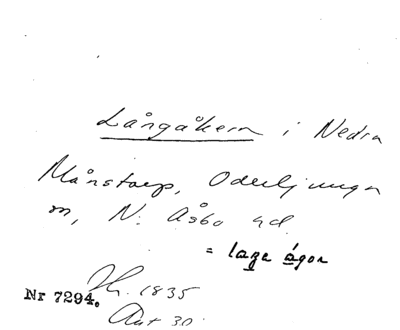 Långåkern i Nedra
Månstorp, Oderljunga
n, N. Åsbo hd.
= lage ágor
Nr 7294. Jk. 1835
Akt 30.